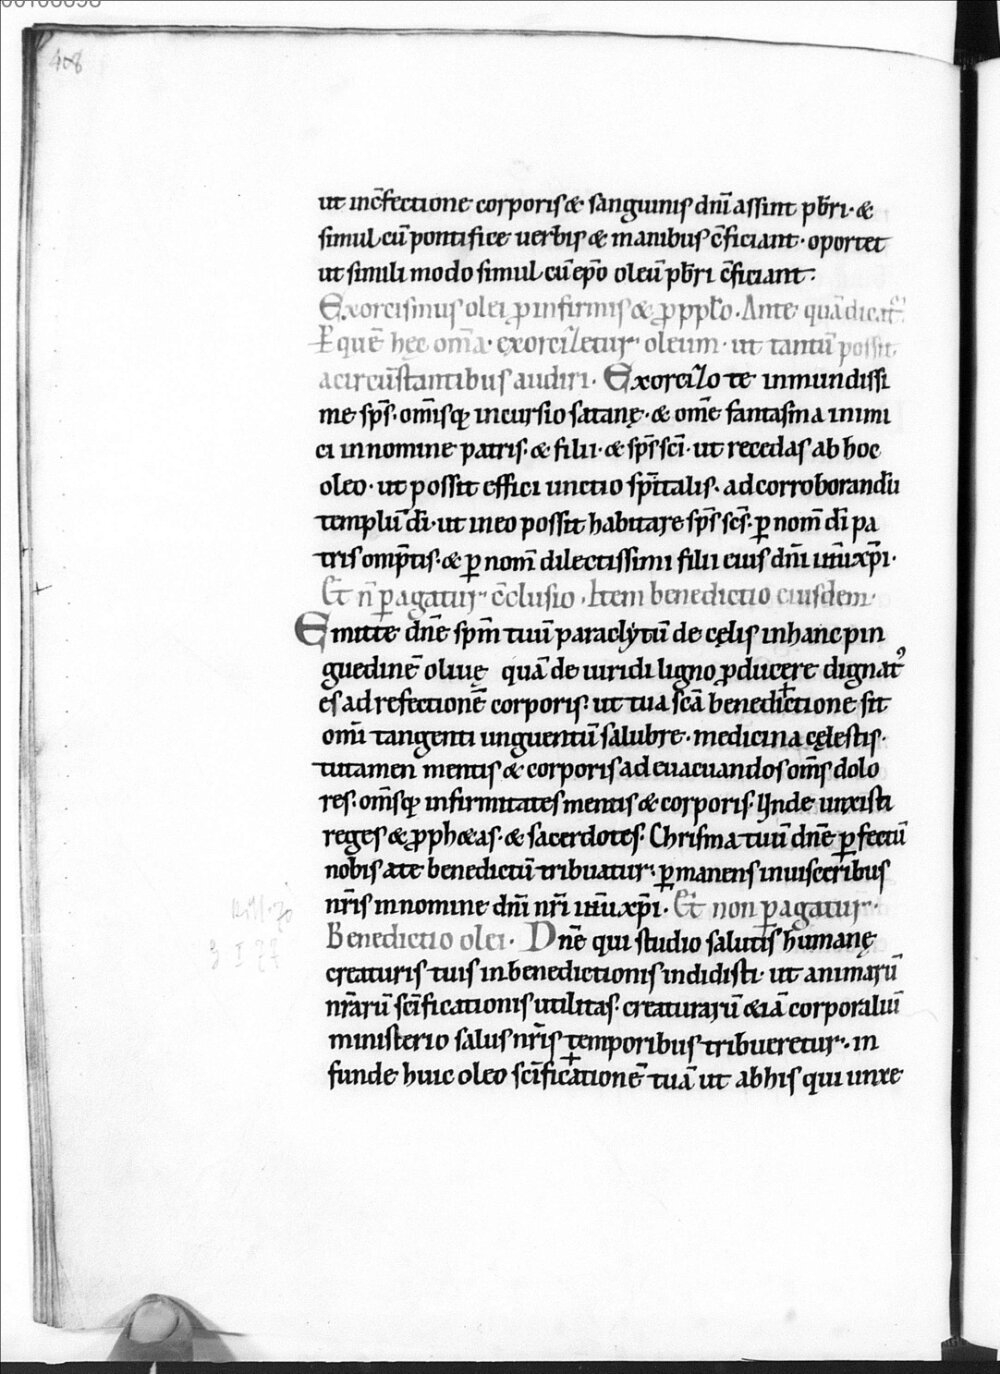 408
ut inc̄fectione corporis & sanguinis dn̄i assint pb̄ri · &
simul cū pontifice uerbis & manibus c̄ficiant · oportet
ut simili modo simul cū ep̄o oleū pb̄ri c̄ficiant :
Exorcismus olei ꝓ infirmis & ꝓ ppl̄o . Ante quā dicat᷑
P̄ quē hęc om̄a · exorciletur oleum · ut tantū possit
a circūstantibus audiri · Exorcilo te inmundissi
me sps̄ · om̄isq; incursio satanę · & om̄e fantasma inimi
ci in nomine patris · & filii · & sps̄ sc̄i · ut recedas ab hoc
oleo · ut possit effici unctio spīitalis · ad corroborandū
templū dī · ut in eo possit habitare sps̄ scs̄ · ꝑ nom̄ dī pa
tris omp̄tis · & ꝑ nom̄ dilectissimi filii eius dn̄i ih̄u xp̄i ·
Et n̄ ꝑagatur c̄clusio · Item benedictio eiusdem ·
Emitte dn̄e spm̄ tuū paraclytū de cęlis in hanc pin
guedinē oliuę quā de uiridi ligno ꝓducere dignat᷒
es ad refectionē corporis · ut tua sc̄a benedi✝ctione sit
om̄i tangenti unguentū salubre · medicina cęlestis ·
tutamen mentis & corporis ad euacuandos om̄s dolo
res · om̄sq; infirmitates mentis & corporis · Unde unxisti
reges & ꝓph&as · & sacerdotes · Chrisma tuū dn̄e ꝑfectū
nobis a te benedictū tribuatur · ꝑmanens in uisceribus
nr̄is in nomine dn̄i nr̄i ih̄u xp̄i · Et non ꝑagatur ·
Benedictio olei · Dn̄e qui studio salutis humanę
creaturis tuis in benedictionis indidisti · ut animarū
nr̄arū sc̄ificationis utilitas · creaturarū &iā corporaliū
ministerio salus nr̄is temporibus tribueretur · in
funde huic oleo sc̄ific✝ationē tuā ut ab his qui unxe